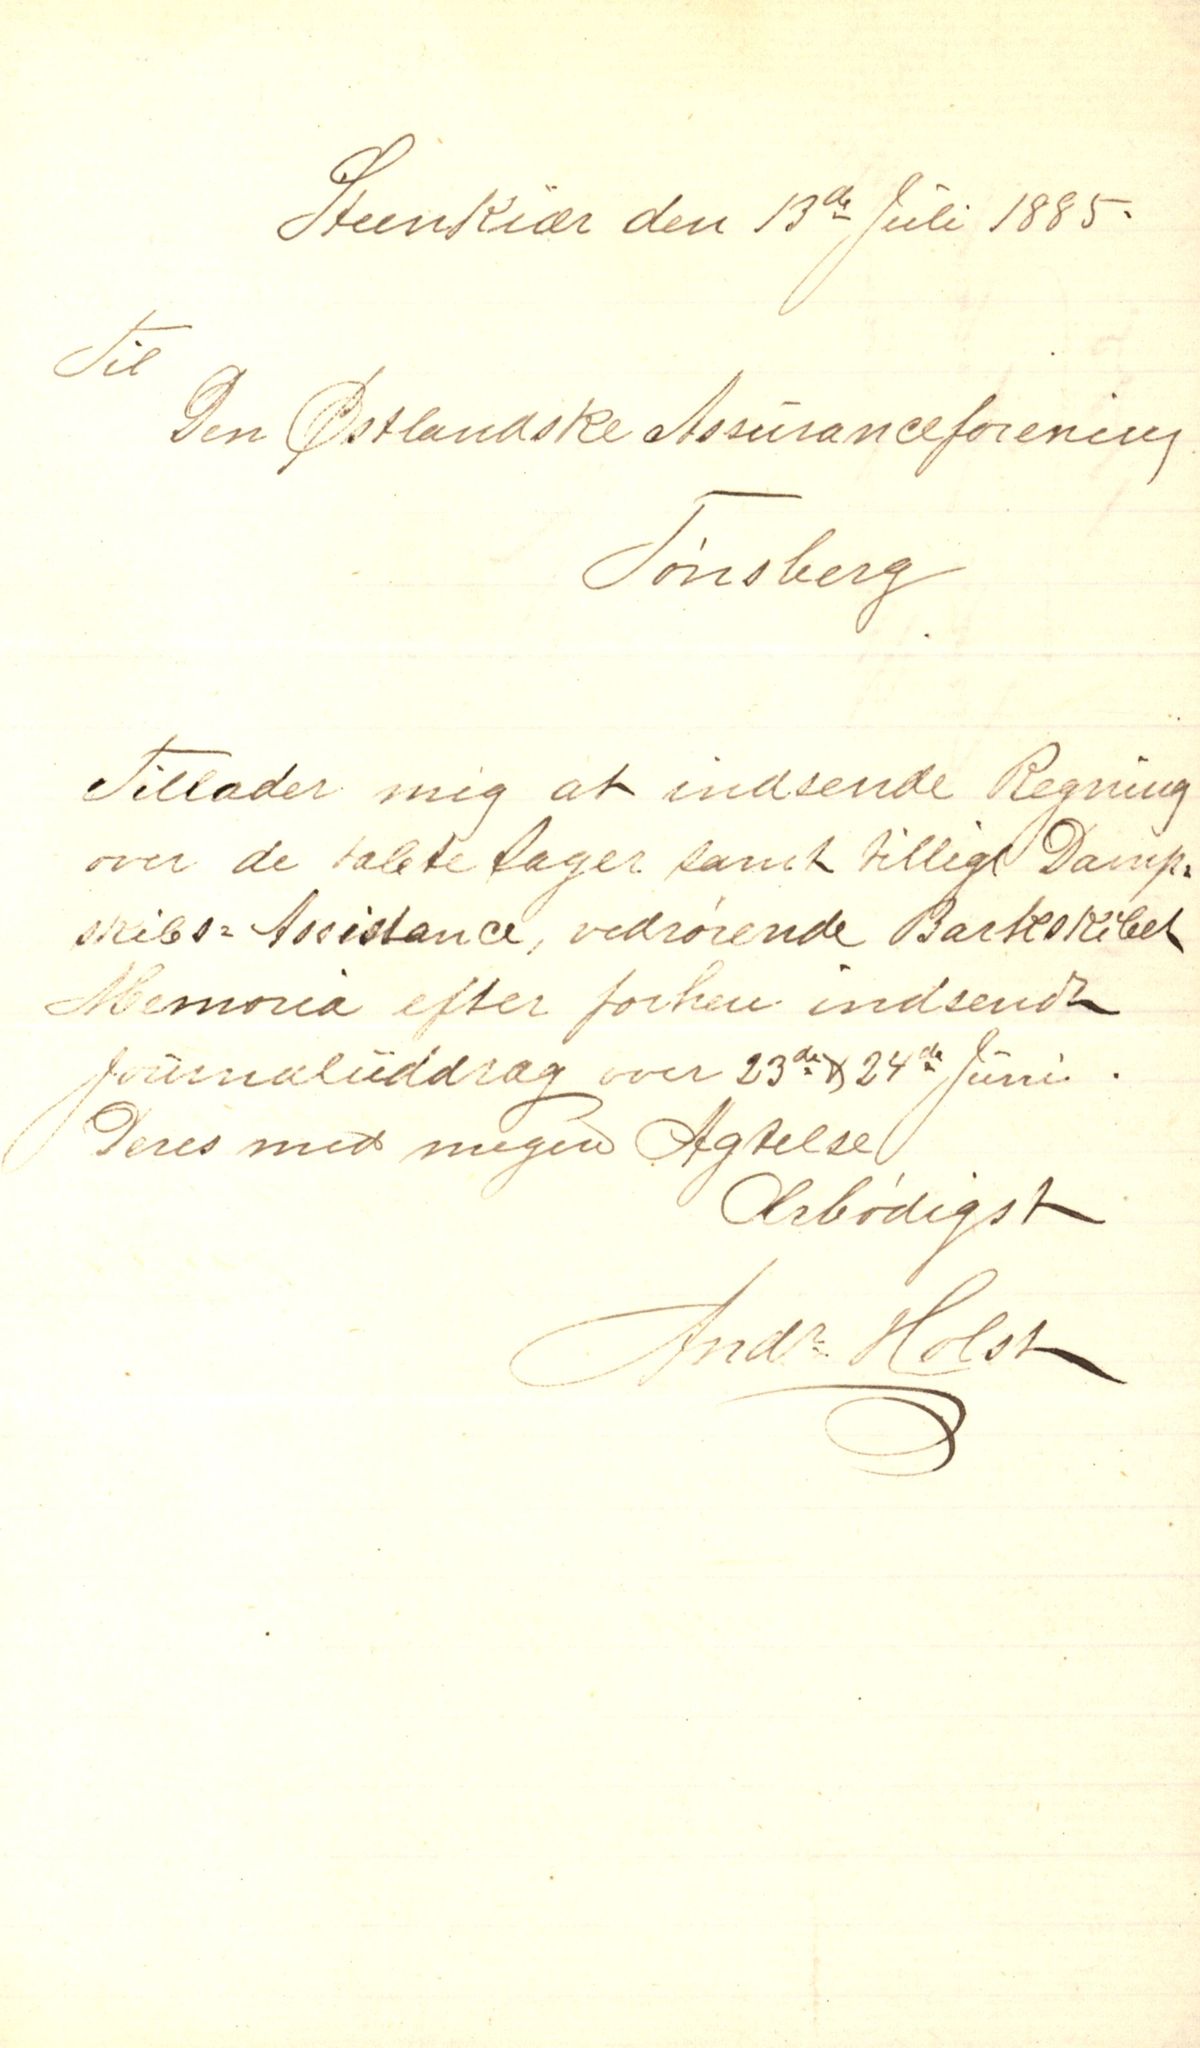 Steenkiær den 13de Juli 1885.
Til
Den Østlandske Assuranceforening
Tønsberg
Tillader mig at indsende Regning
over de tabte sager samt tillige Damp=
skibs=Assistance, vedrørende Barkskibet
Memoria efter forhen indsendt
Journaluddrag over 23de & 24de Juni.
Deres med megen Agtelse
Ærbødigst
Andr. Holst